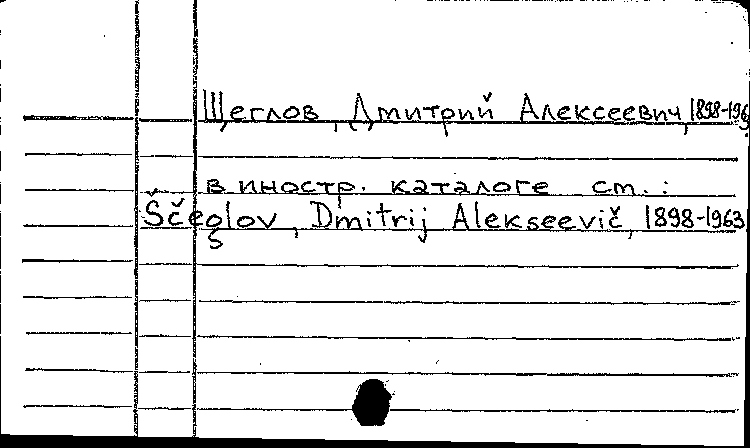 Щеглов, Дмитрий Алексеевич, 1898-1963
в иностр. каталоге см.:
Ščeglov, Dmitrij Alekseevič, 1898-1963